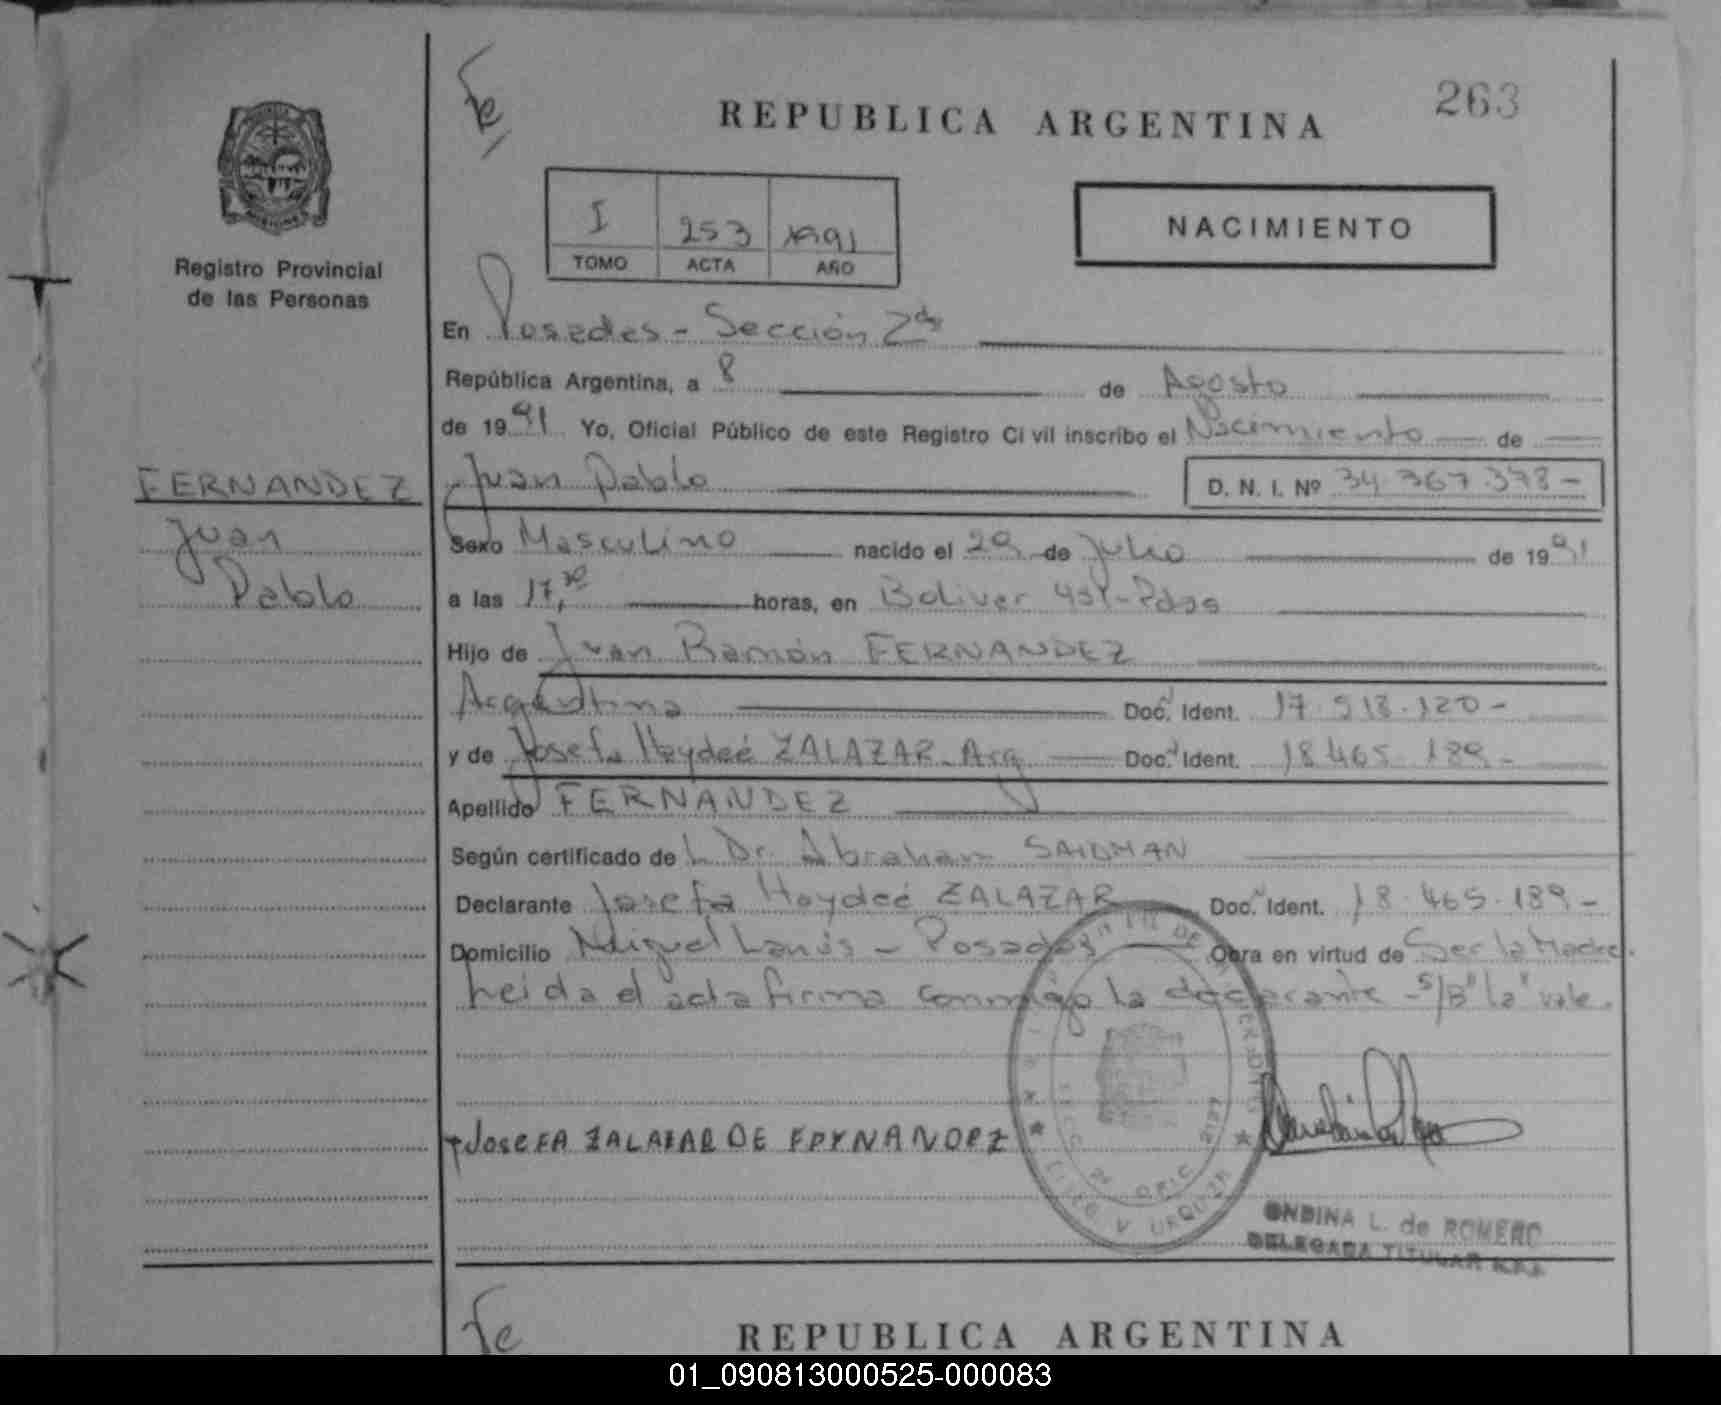 Fe
263
REPUBLICA ARGENTINA
I 253 1991
TOMO ACTA AÑO
NACIMIENTO
Registro Provincial
de las Personas
En Posadas - Sección 2da
República Argentina, a 8 de Agosto
de 1991 Yo, Oficial Público de este Registro Civil inscribo el Nacimiento de
FERNANDEZ
Juan Pablo D. N. I. Nº 34.367.378-
Juan
Sexo Masculino nacido el 29 de Julio de 1991
Pablo
a las 17,30 horas, en Bolivar - Pdas
Hijo de Juan Ramón FERNANDEZ
Argentina Doc. Ident. 17.513.120-
y de Josefa Haydeé ZALAZAR - Arg Doc. Ident. 18.465.189-
Apellido FERNANDEZ
Según certificado de L Dr. Abraham SAIDMAN
Declarante Josefa Haydeé ZALAZAR Doc. Ident. 18.465.189-
Domicilio Miguel Lanús - Posadas Obra en virtud de Ser la Madre.
Leida el acta firma conmigo la declarante - S/B "la" vale.
JOSEFA ZALAZAR DE FERNANDEZ
ONDINA L. de ROMERO
DELEGADA TITULAR
Fe
REPUBLICA ARGENTINA
01_090813000525-000083